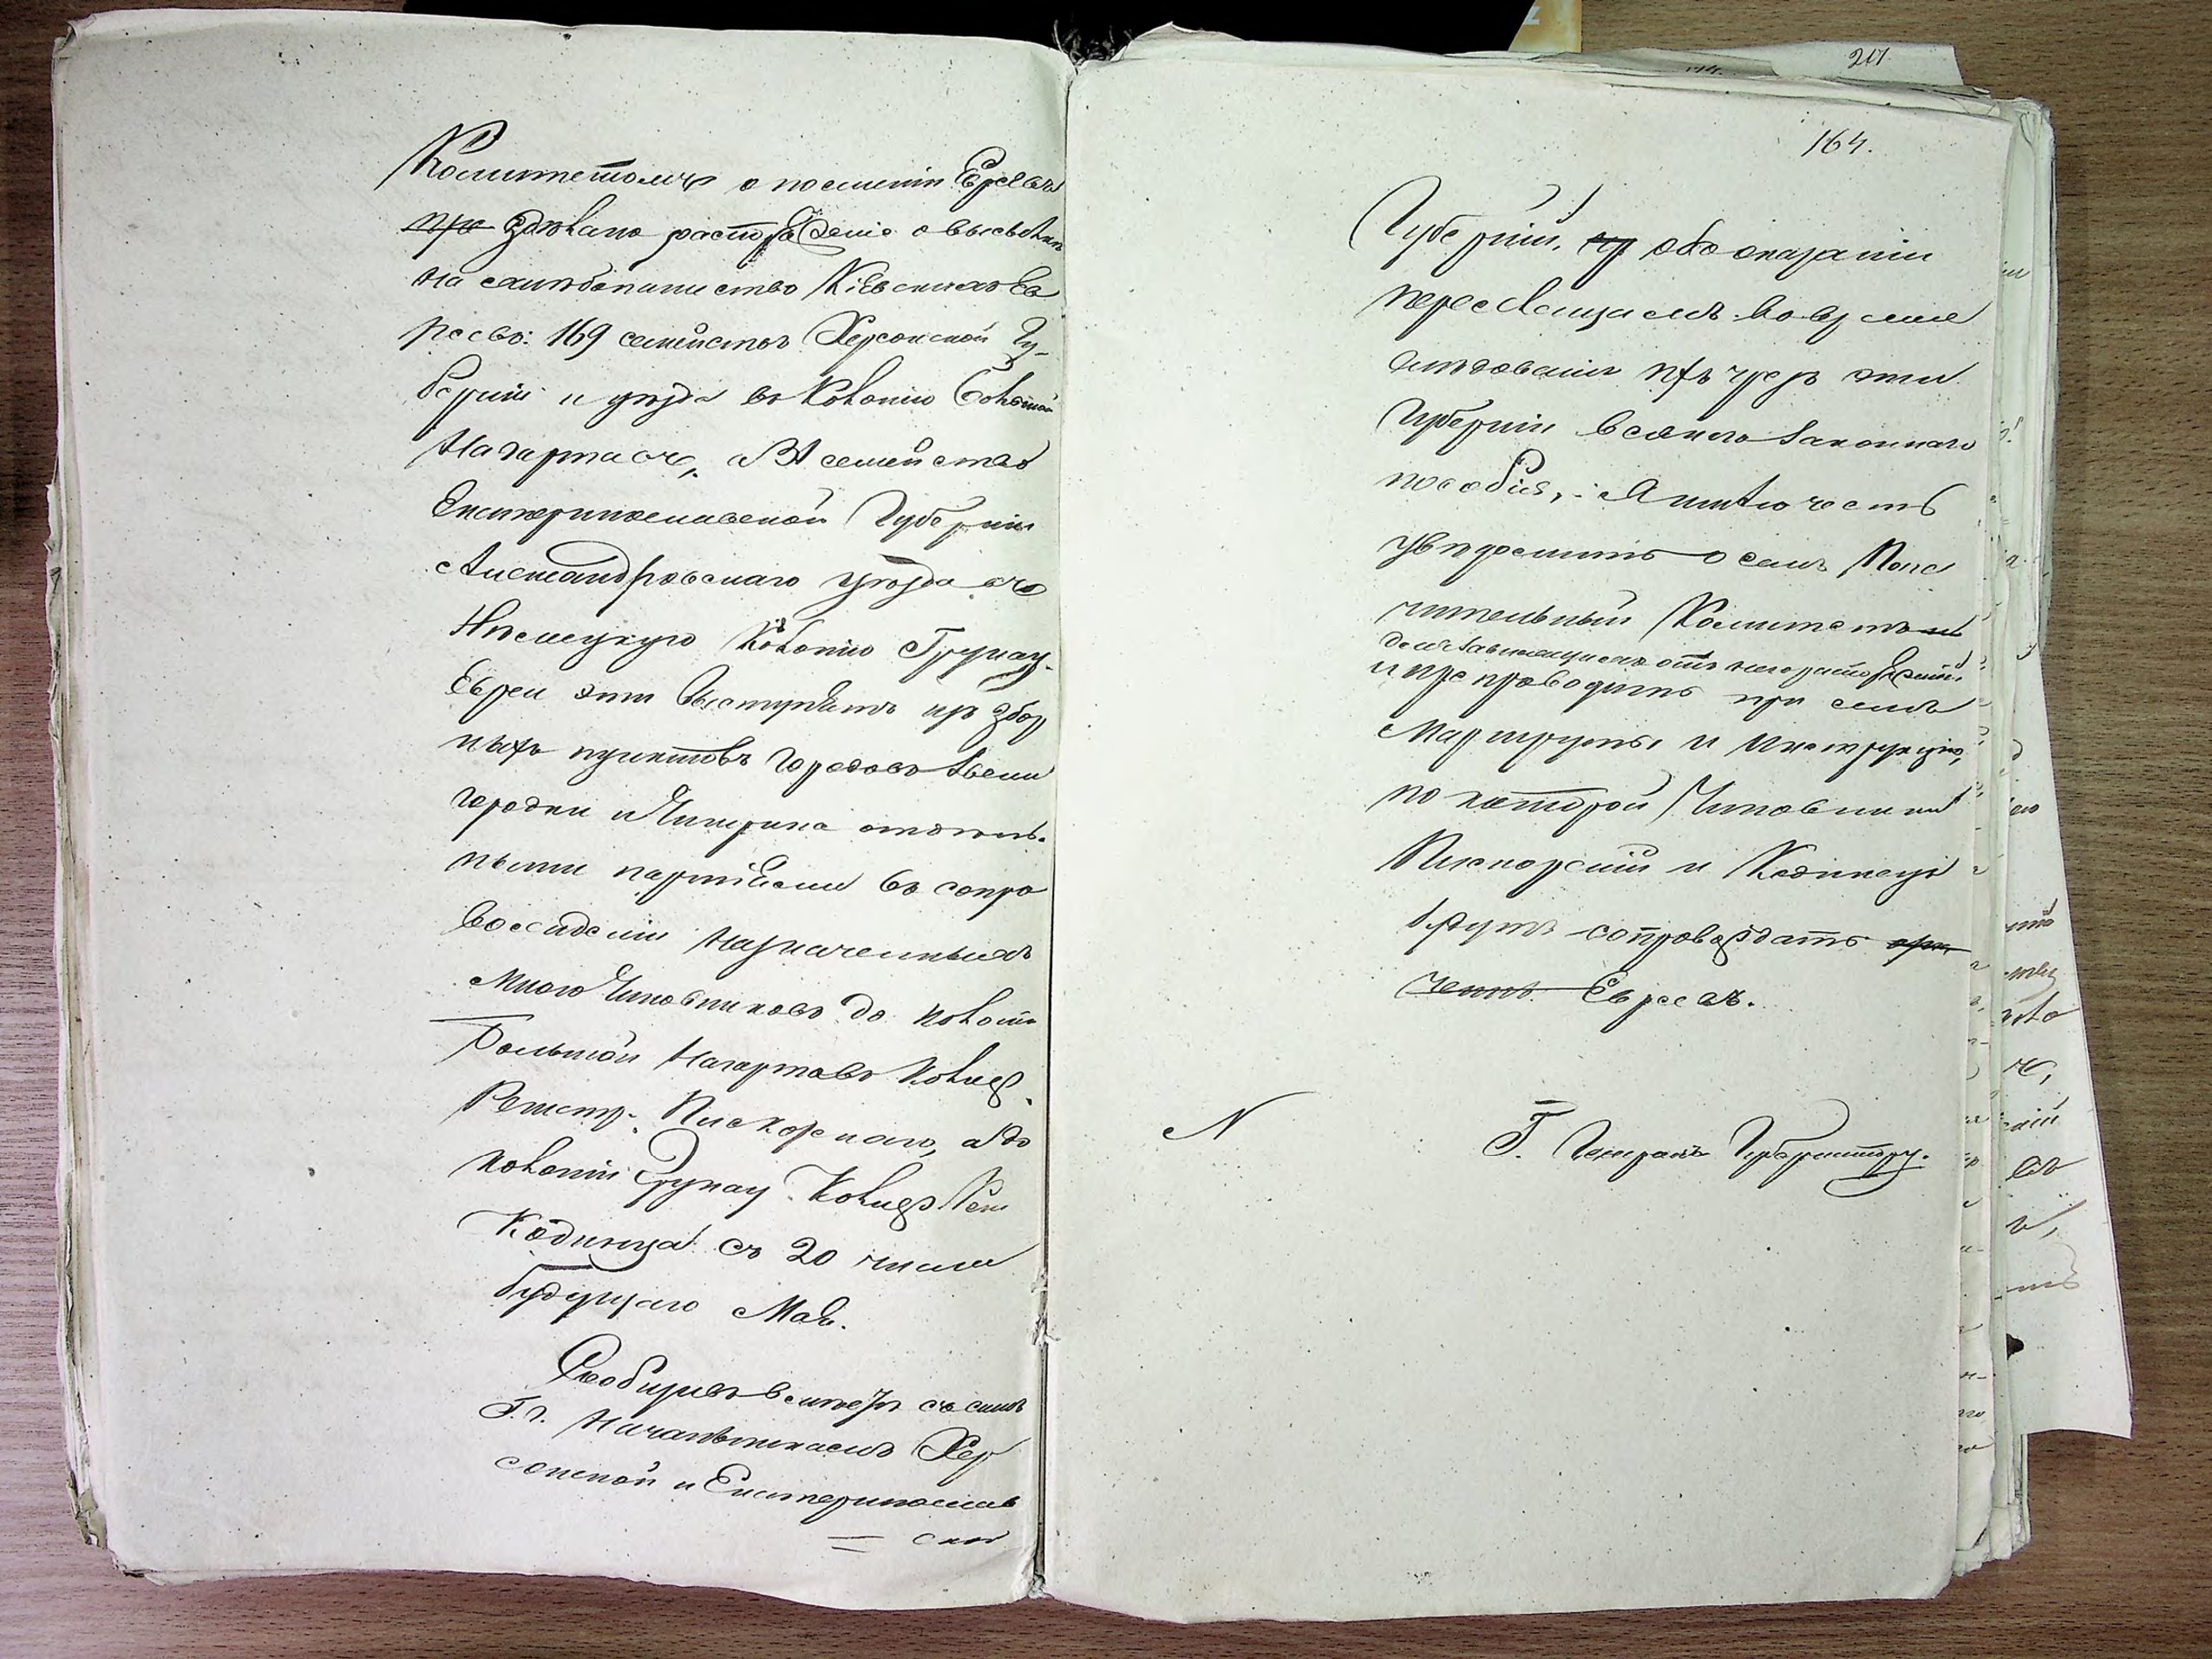 Комитетомъ о поселеніи Евреевъ
сдѣлано распоряженіе о высылкѣ
на хлѣбопашество Кіевскихъ Ев
реевъ: 169 семействъ Херсонской Гу-
берніи и уѣзда въ Колонію Большой
Нагартавъ, а 31 семейство
Екатеринославской Губерніи
Александровскаго уѣзда въ
Нѣмецкую Колонію Грунау.
Евреи эти выступятъ изъ Збор
ныхъ пунктовъ городовъ Звени
городки и Чигирина отдѣль-
ными партіями въ сопро
вожденіи назначенныхъ
мною Чиновниковъ до колоніи
Большой Нагартавъ Коллеж.
Регистр. Пискорскаго, а до
колоніи Грунау Коллеж Рег
Кодинца съ 20 числа
будущаго Мая.
Сообщивъ вмѣстѣ съ симъ
Г.г. Начальникамъ Хер
сонской и Екатеринослав
ской
217
164.
Губерній, объ оказаніи
переселенцамъ во время
слѣдованія ихъ чрезъ эти
Губерніи всякаго законнаго
пособія, имѣю честь
увѣдомить о семъ Попе
чительный Комитетъ
для зависящихъ отъ него распоряженій
и препроводить при семъ
Маршруты и Инструкцію,
по которой Чиновники
Пискорскій и Кодинецъ
будутъ сопровождать
Евреевъ.
N
Г. Генералъ Губернатору.